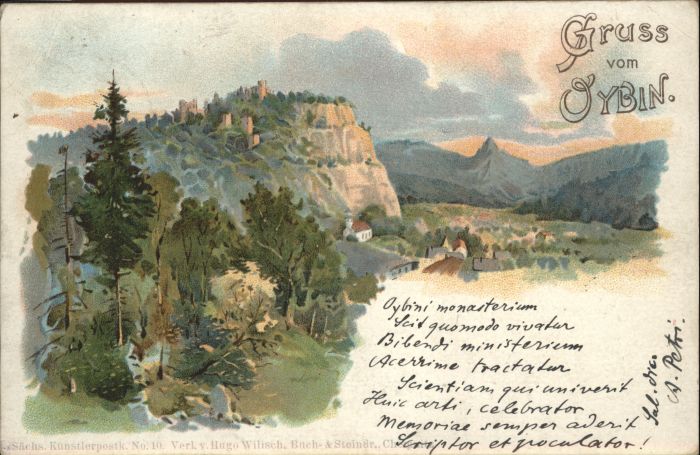 Gruss
vom
OYBIN.
Oybini monasterium
Scit quomodo vivatur
Bibendi ministerium
Acerrime tractatur
Scientiam qui univerit
Huic arti, celebrator
Memoriae semper aderit
Scriptor et poculator!
Sal. dic.
A. Petri.
Sächs. Künstlerpostk. No. 10. Verl. v. Hugo Wilisch, Buch- & Steindr.,